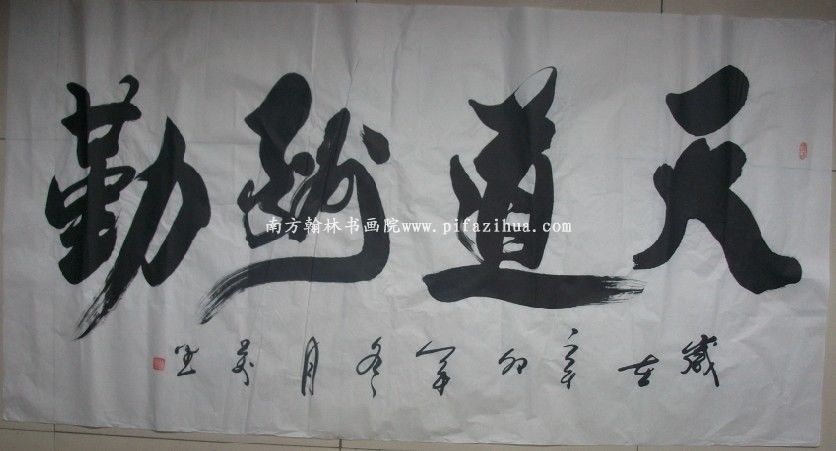 天道酬勤
南方翰林书画院www.pifazihua.com
歲在辛卯年冬月